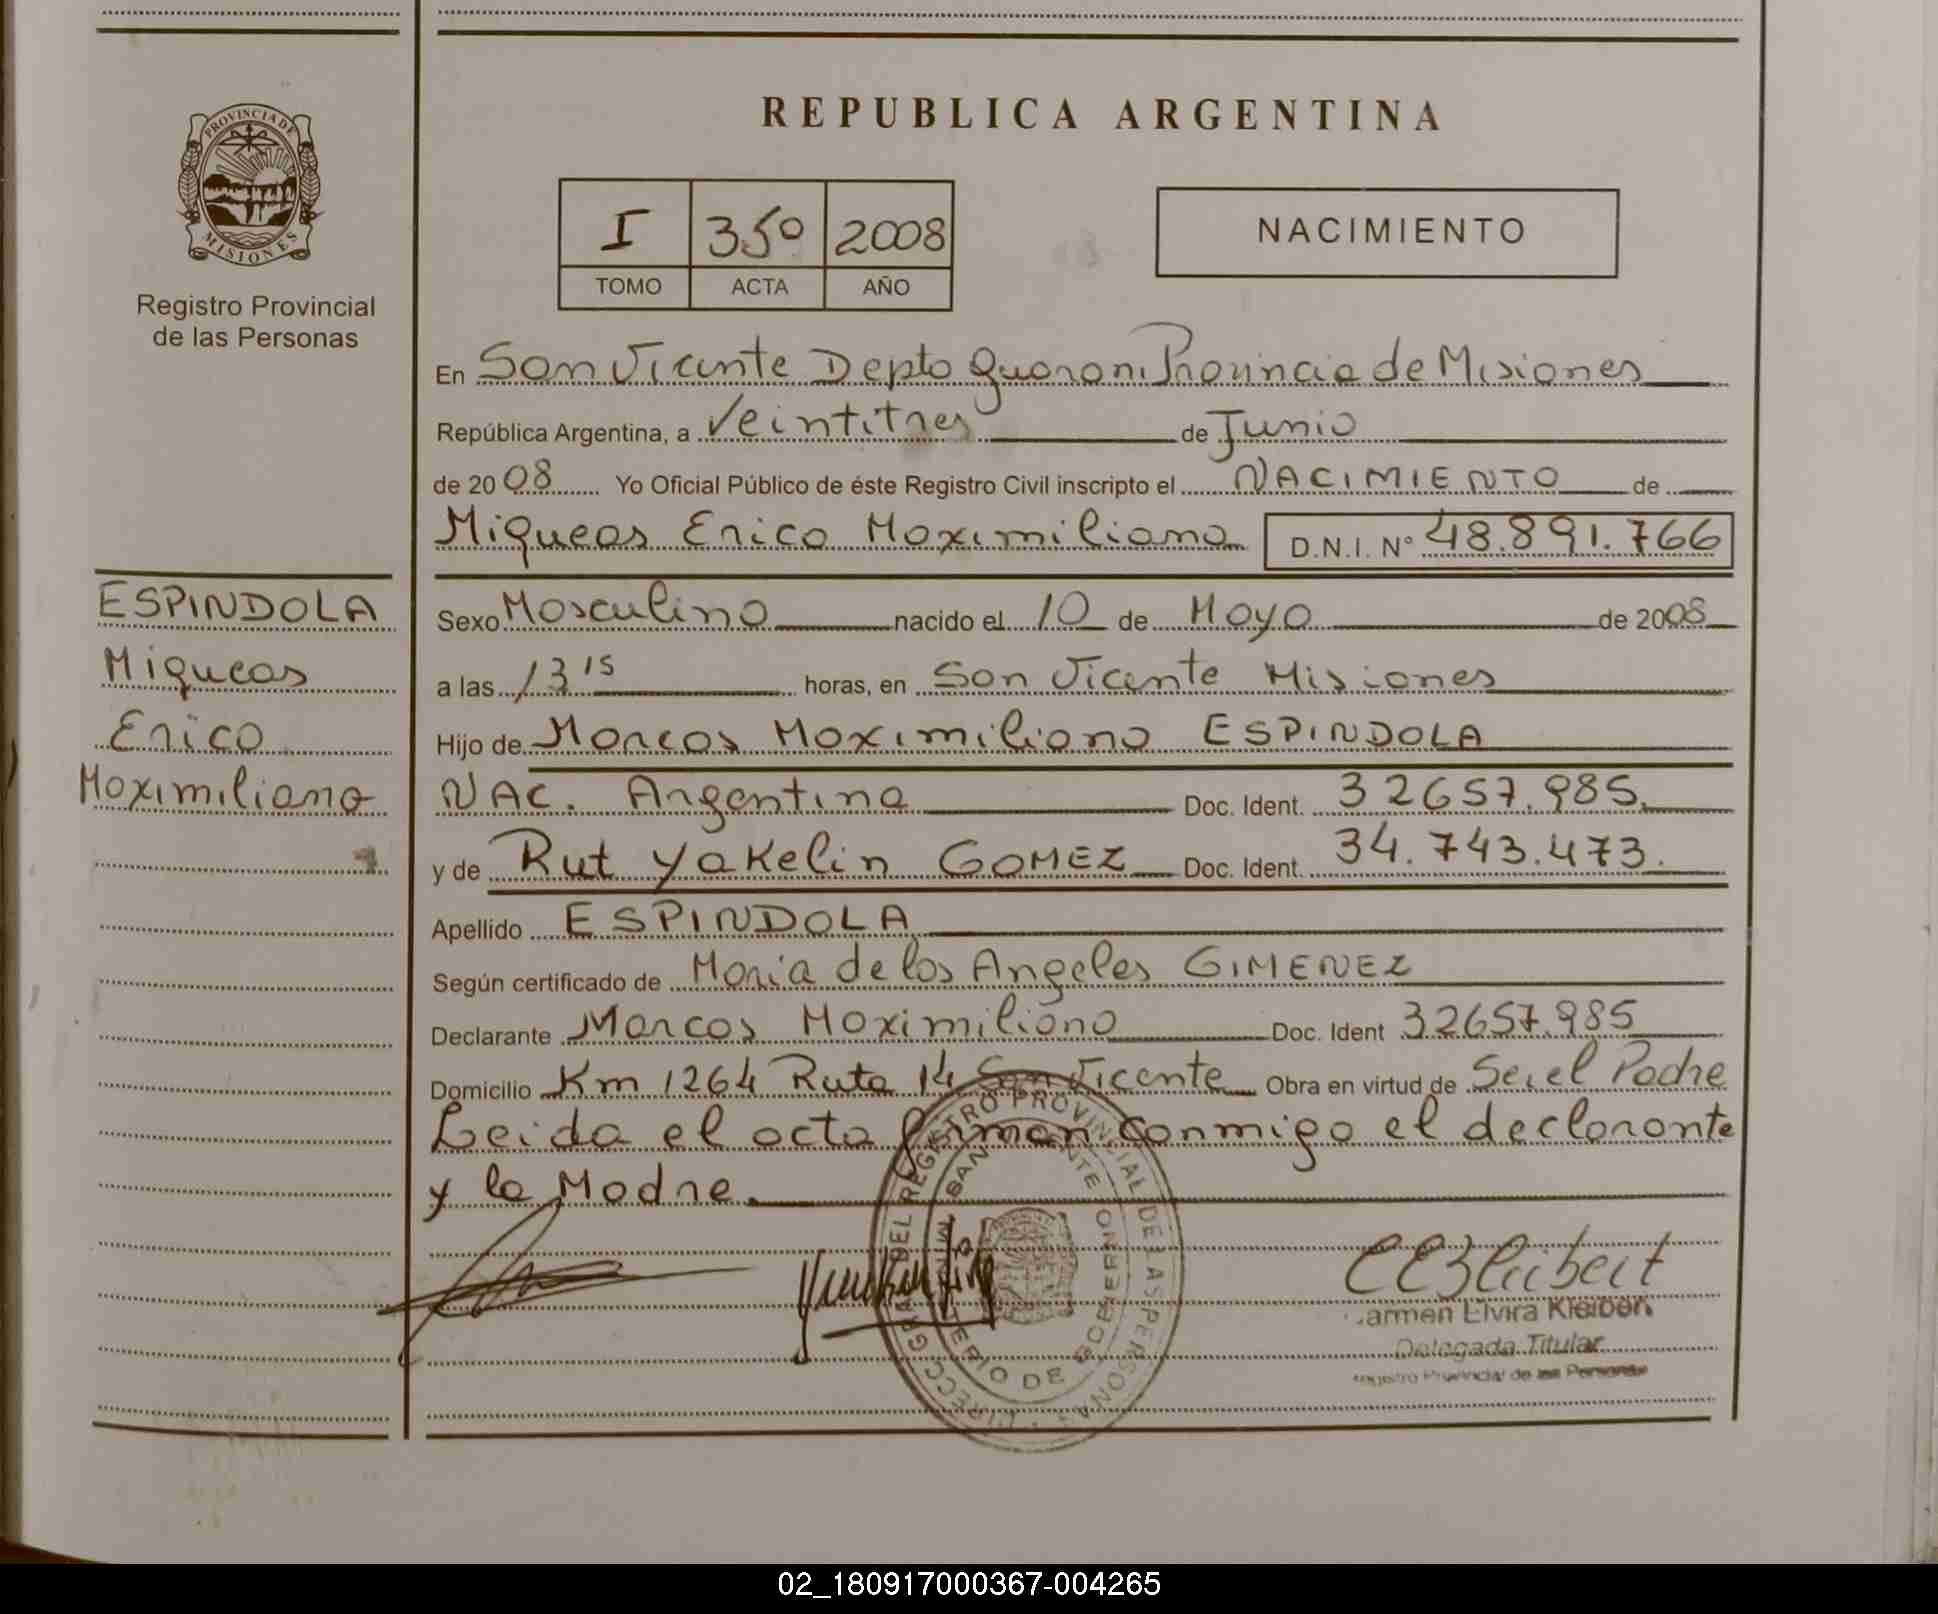 PROVINCIA DE
MISIONES
Registro Provincial
de las Personas
REPUBLICA ARGENTINA
I 350 2008
TOMO ACTA AÑO
NACIMIENTO
En San Vicente Depto Guarani Provincia de Misiones
República Argentina, a Veintitres de Junio
de 2008 Yo Oficial Público de éste Registro Civil inscripto el NACIMIENTO de
Miqueas Erico Maximiliano D.N.I. N° 48.891.766
ESPINDOLA
Miqueas
Erico
Maximiliano
Sexo Masculino nacido el 10 de Mayo de 2008
a las 13 15 horas, en San Vicente Misiones
Hijo de Marcos Maximiliano ESPINDOLA
NAC. Argentina Doc. Ident. 32657.985.
y de Rut Yakelin GOMEZ Doc. Ident. 34.743.473.
Apellido ESPINDOLA
Según certificado de Maria de los Angeles GIMENEZ
Declarante Marcos Maximiliano Doc. Ident 32657.985
Domicilio Km 1264 Ruta 14 San Vicente Obra en virtud de Ser el Padre
Leida el acta firman conmigo el declarante
y la Madre.
armen Elvira Kleibert
Delegada Titular
Registro Provincial de las Personas
02_180917000367-004265